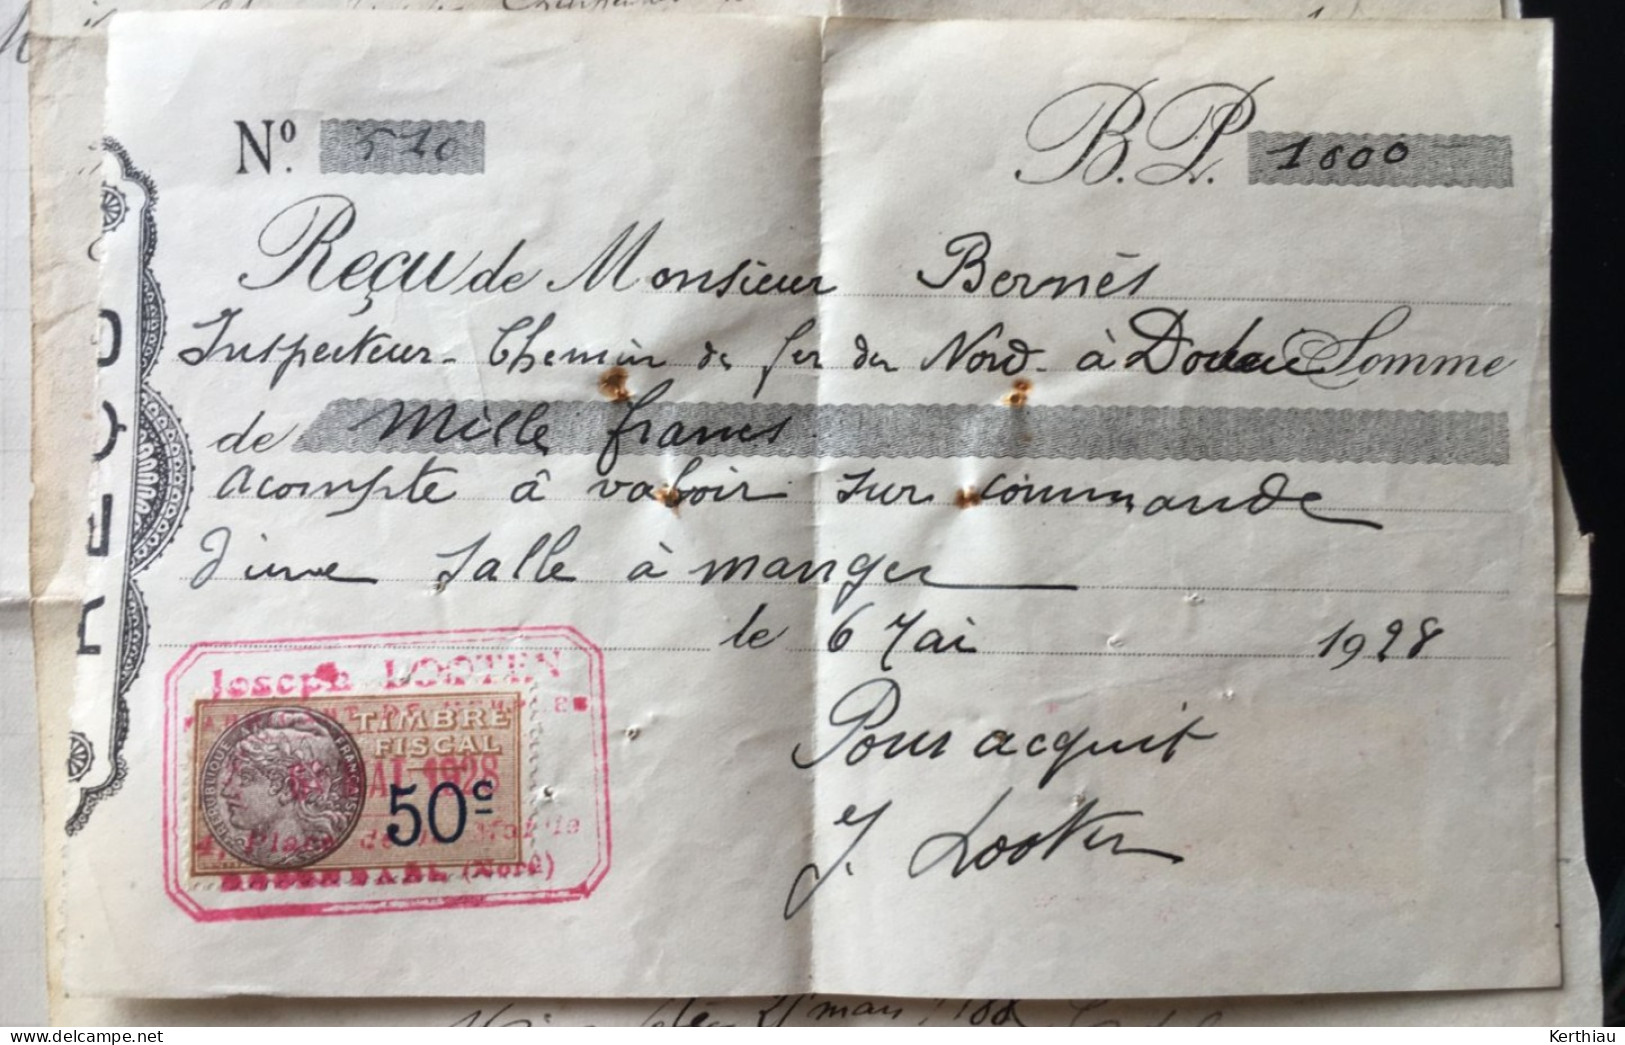 Nº 510
B.P. 1000
Reçu de Monsieur Bernès
Inspecteur - Chemin de fer du Nord - à Somme
de Mille francs
acompte à valoir sur commande
d'une salle à manger
le 6 Mai 1928
Pour acquit
J. Looten
Joseph LOOTEN
TIMBRE
FISCAL
REPUBLIQUE FRANÇAISE
MAI 1928
50c
4, Place de la Mairie
(Nord)
21 mars
Kerthiau